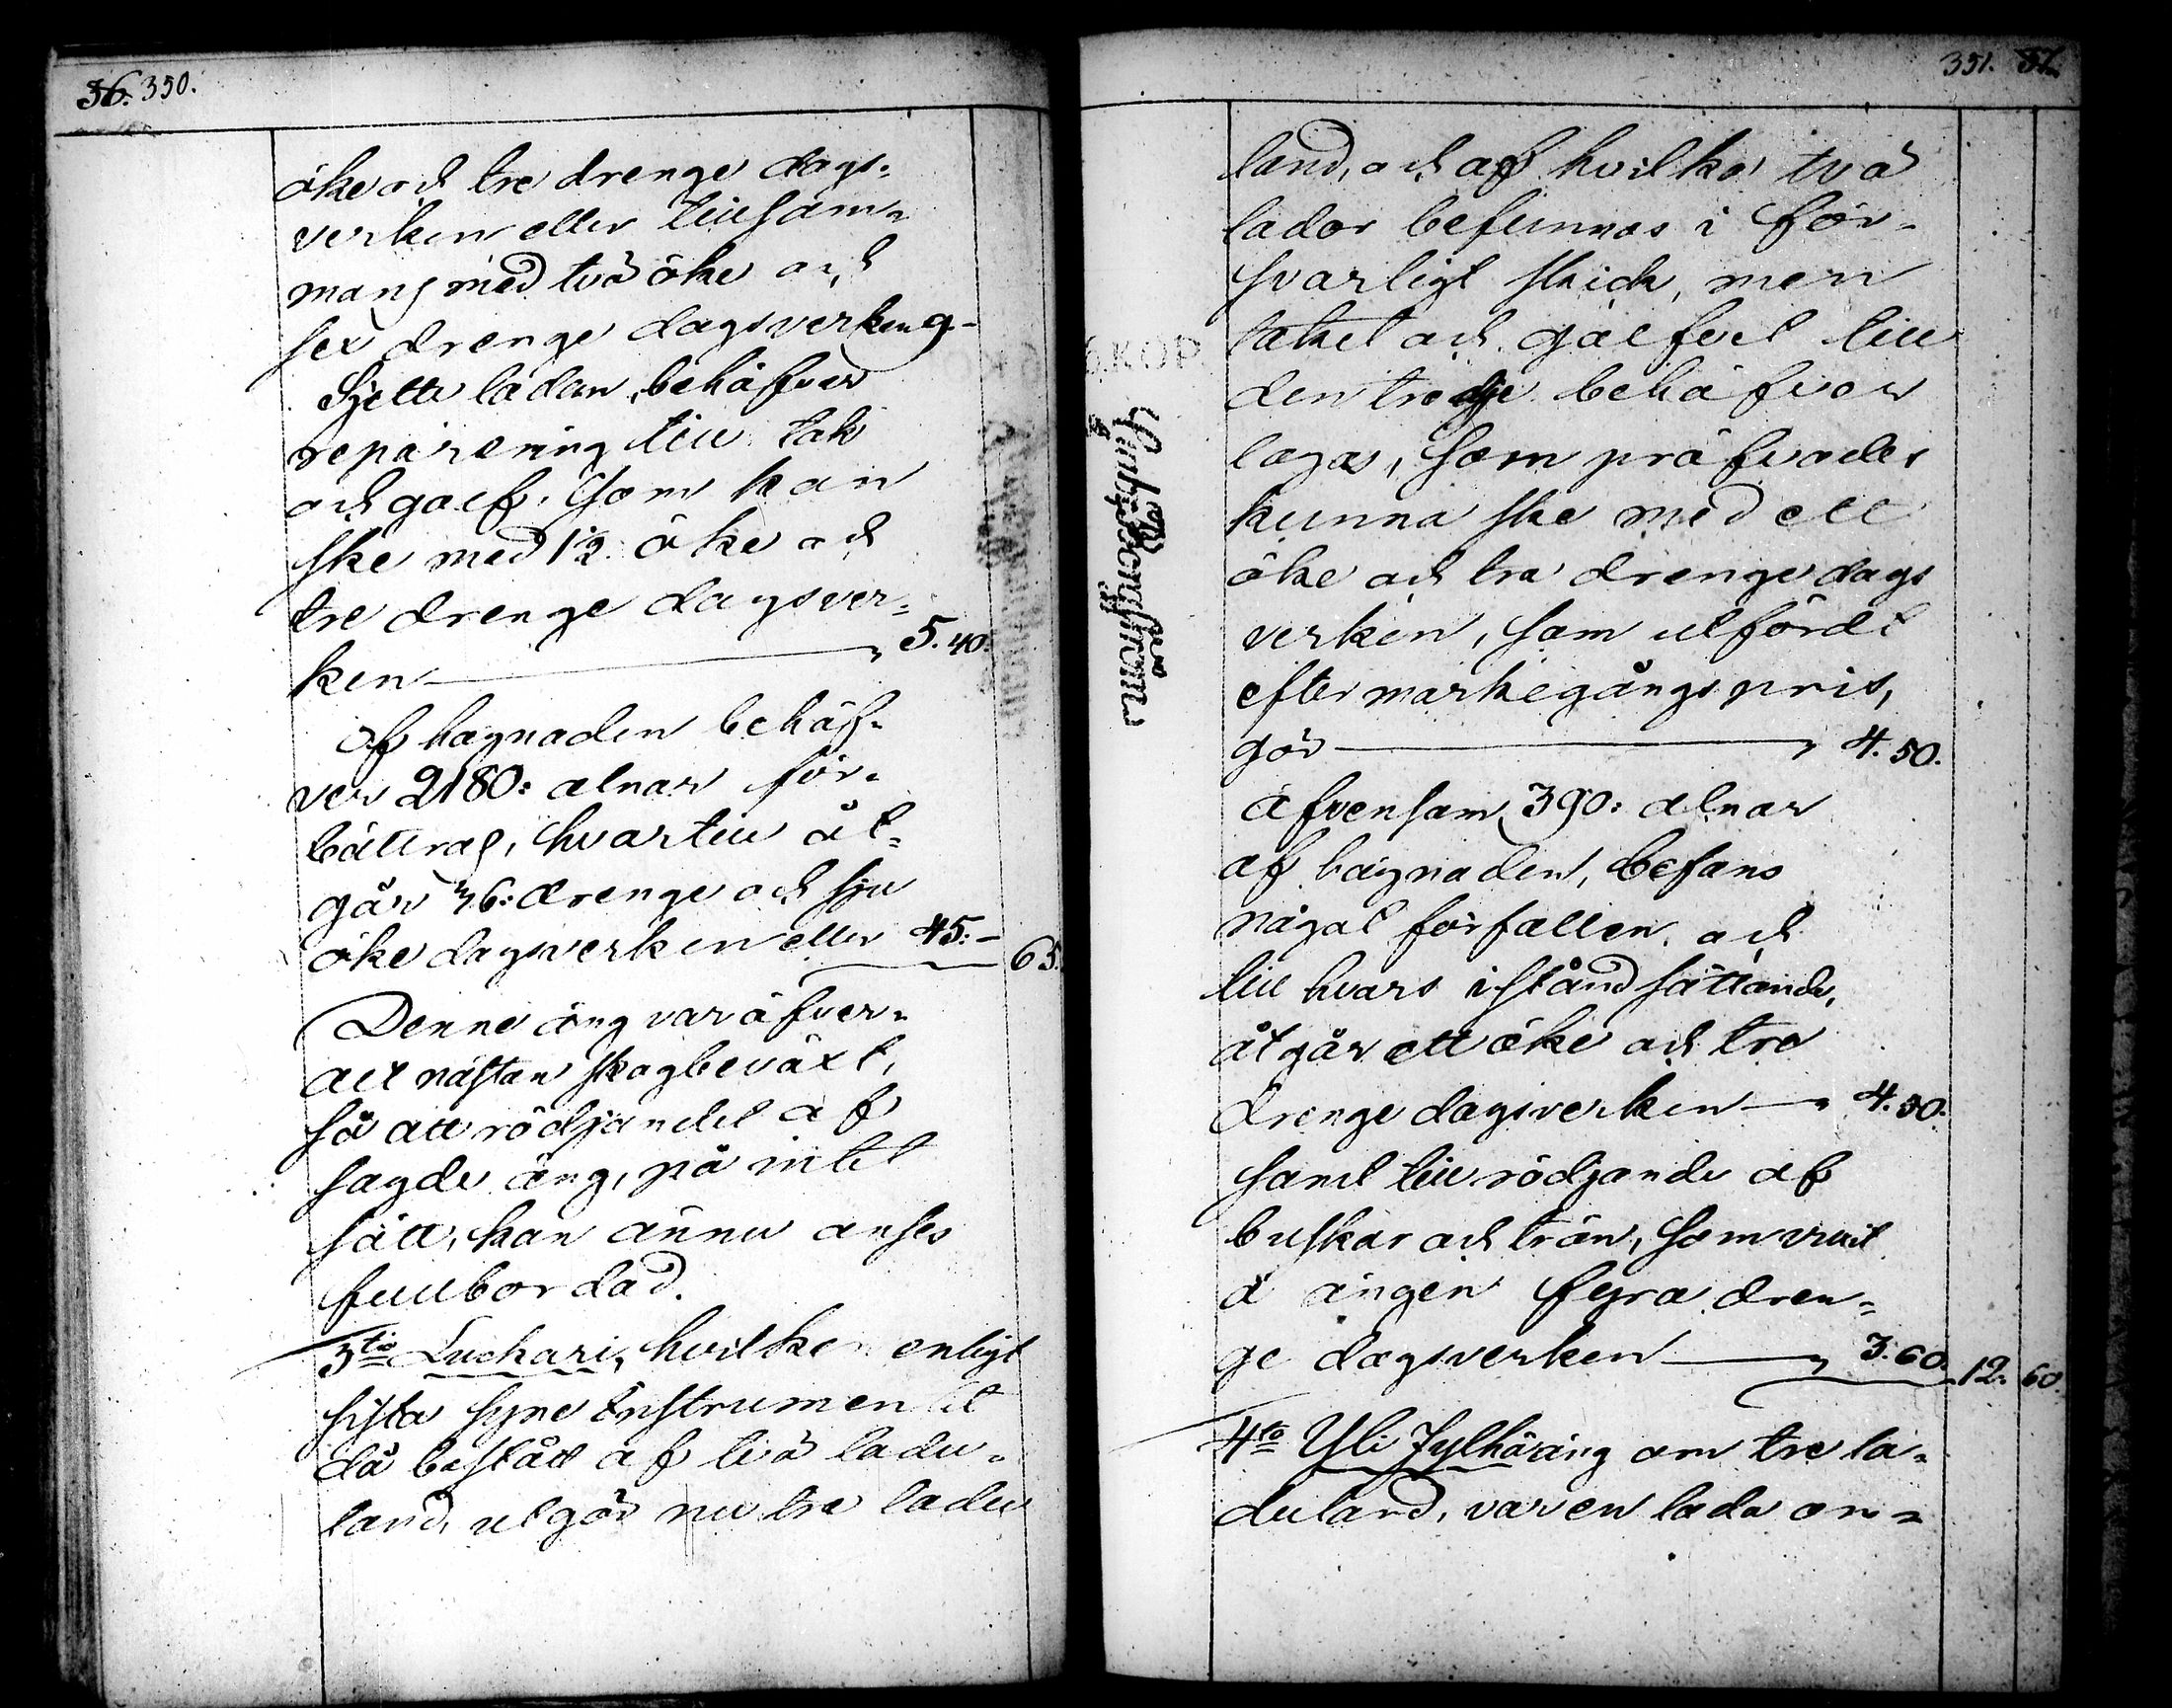 36. 350.
öke och tre drenge dags-
verken eller tillsam-
mans med två öke och
sex drenge dagsverken 9-
Sjette ladan behöfver
reparering till tak
och golf, som kan
ske med 1½ öke och
tre drenge dagsver-
ken 5.40.
Af hägnaden behöf-
ver 2180: alnar för-
bättras, hvartill åt-
går 36: drenge och sju
öke dagsverken eller 45.- 65.
Denne äng var öfver-
allt nästan skogbeväxt,
så att rödjandet af
sagde äng, på intet
sätt, kan ännu anses
fullbordad.
3tio Luchari, hvilken enligt
sista syne Instrumentet
då bestått af två ladu-
land, utgör nu tre ladu
351. 37.
land, och af hvilka två
lador befunnos i för-
svarligt skick, men
taket och golfvet till
den tredje behöfver
lagas, som pröfvades
kunna ske med ett
öke och tre drenge dags
verken, som utfördt
efter markegångs pris,
gör 4.50.
äfvensom 390: alnar
af hägnaden, befans
något förfallen och
till hvars iståndsättande,
åtgår ett öke och tre
drenge dagsverken 4.50.
samt till rödjande af
buskar och trän, som vuxit
å ängen fyra dren-
ge dagsverken 3.60. 12. 60.
4to Yli Jylhäräng om tre la-
duland, var en lada om-